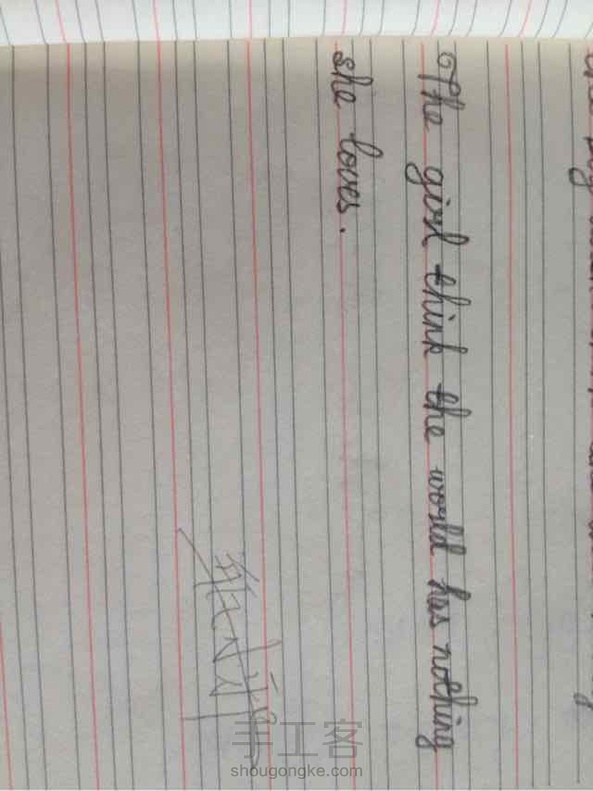 The girl think the world has nothing
she loves.
手工客
shougongke.com